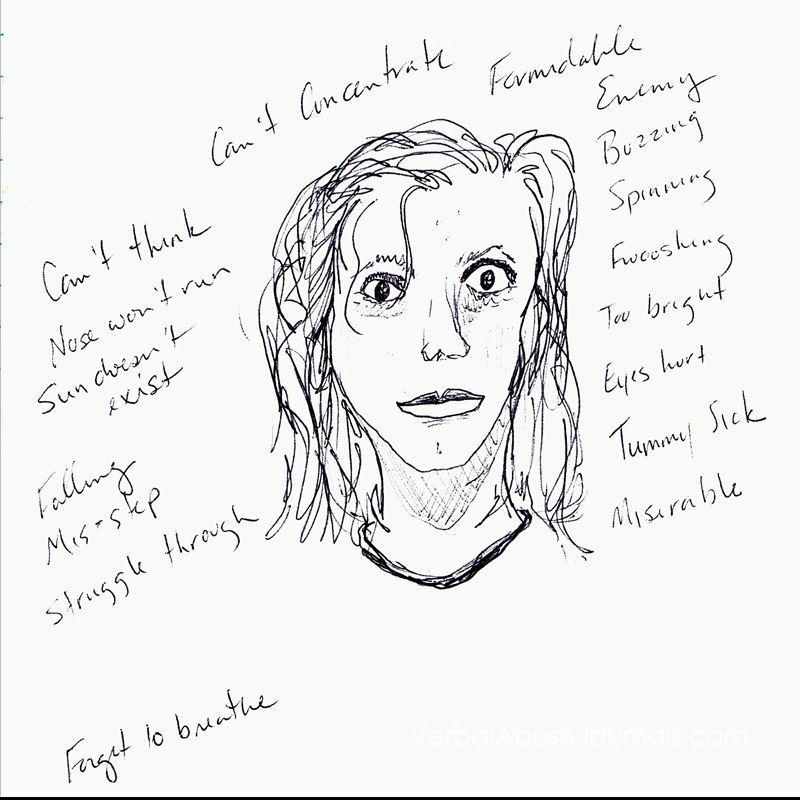 Can't Concentrate
Formidable
Enemy
Buzzing
Spinning
Fwooshing
Too bright
Eyes hurt
Tummy Sick
Miserable
Can't think
Nose won't run
Sun doesn't
exist
Falling
Mis-step
Struggle through
Forget to breathe
VerbalAbuseJournals.com